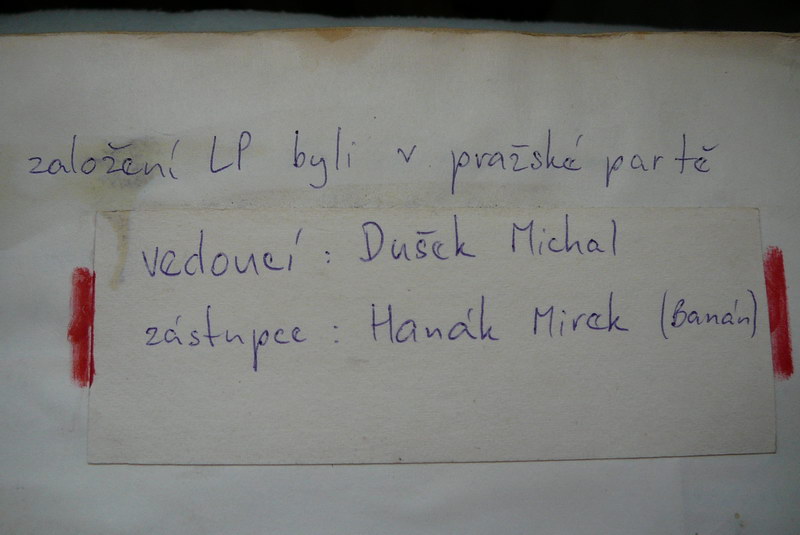 založení LP byli v pražské partě
vedoucí : Dušek Michal
zástupce : Hanák Mirek (Banán)